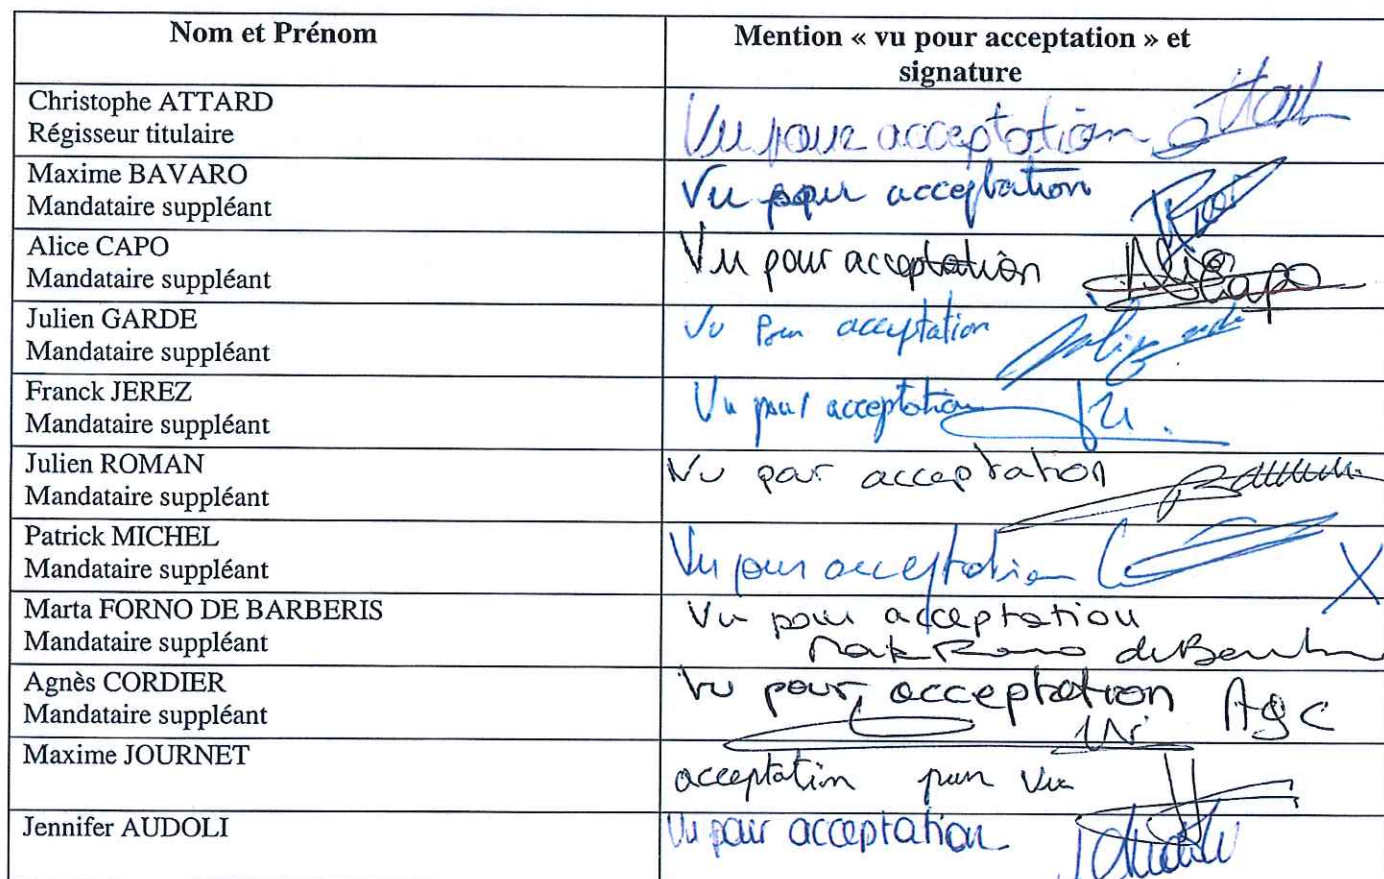 Nom et Prénom
Mention « vu pour acceptation » et
signature
Christophe ATTARD
Régisseur titulaire
Vu pour acceptation
Maxime BAVARO
Mandataire suppléant
Vu pour acceptation
Alice CAPO
Mandataire suppléant
Vu pour acceptation Alice Capo
Julien GARDE
Mandataire suppléant
Vu Pour acceptation
Franck JEREZ
Mandataire suppléant
Vu pour acceptation
Julien ROMAN
Mandataire suppléant
Vu par acceptation
Patrick MICHEL
Mandataire suppléant
Vu pour acceptation X
Marta FORNO DE BARBERIS
Mandataire suppléant
Vu pour acceptation
Agnès CORDIER
Mandataire suppléant
Vu pour acceptation Ag C
Maxime JOURNET
acceptation pour Vu
Jennifer AUDOLI
Vu pour acceptation